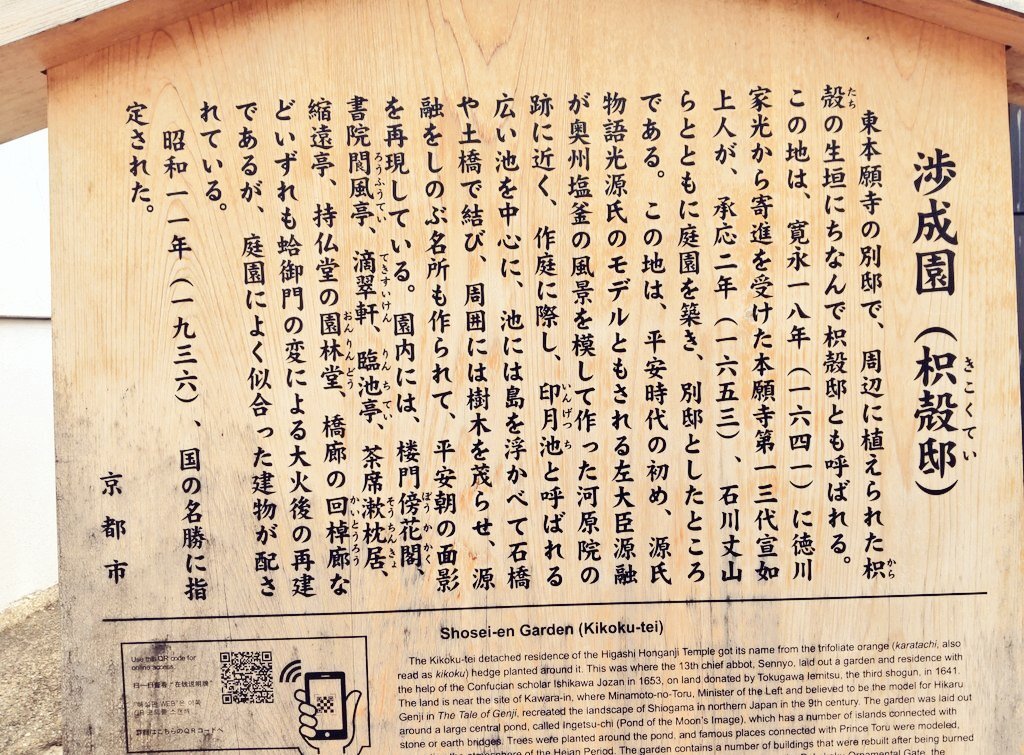 渉成園（枳殻邸）
きこくてい
東本願寺の別邸で、周辺に植えられた枳
から
殻の生垣にちなんで枳殻邸とも呼ばれる。
たち
この地は、寛永一八年（一六四一）に徳川
家光から寄進を受けた本願寺第一三代宣如
上人が、承応二年（一六五三）、石川丈山
らとともに庭園を築き、別邸としたところ
である。この地は、平安時代の初め、源氏
物語光源氏のモデルともされる左大臣源融
が奥州塩釜の風景を模して作った河原院の
跡に近く、作庭に際し、印月池と呼ばれる
いんげっち
広い池を中心に、池には島を浮かべて石橋
や土橋で結び、周囲には樹木を茂らせ、源
融をしのぶ名所も作られて、平安朝の面影
を再現している。園内には、楼門傍花閣、
ぼうかかく
書院閬風亭、滴翠軒、臨池亭、茶席漱枕居、
ろうふうてい てきすいけん りんちてい そうちんきょ
縮遠亭、持仏堂の園林堂、橋廊の回棹廊な
おんりんどう かいとうろう
どいずれも蛤御門の変による大火後の再建
であるが、庭園によく似合った建物が配さ
れている。
昭和一一年（一九三六）、国の名勝に指
定された。
京都市
Shosei-en Garden (Kikoku-tei)
The Kikoku-tei detached residence of the Higashi Honganji Temple got its name from the trifoliate orange (karatachi, also
read as kikoku) hedge planted around it. This was where the 13th chief abbot, Sennyo, laid out a garden and residence with
the help of the Confucian scholar Ishikawa Jozan in 1653, on land donated by Tokugawa Iemitsu, the third shogun, in 1641.
The land is near the site of Kawara-in, where Minamoto-no-Toru, Minister of the Left and believed to be the model for Hikaru
Genji in The Tale of Genji, recreated the landscape of Shiogama in northern Japan in the 9th century. The garden was laid out
around a large central pond, called Ingetsu-chi (Pond of the Moon's Image), which has a number of islands connected with
stone or earth bridges. Trees were planted around the pond, and famous places connected with Prince Toru were modeled,
atmosphere of the Heian Period. The garden contains a number of buildings that were rebuilt after being burned
Ornamental Gate
Use this QR code for
online access.
扫一扫查看"在线说明牌"
詳細はこちらのQRコードへ